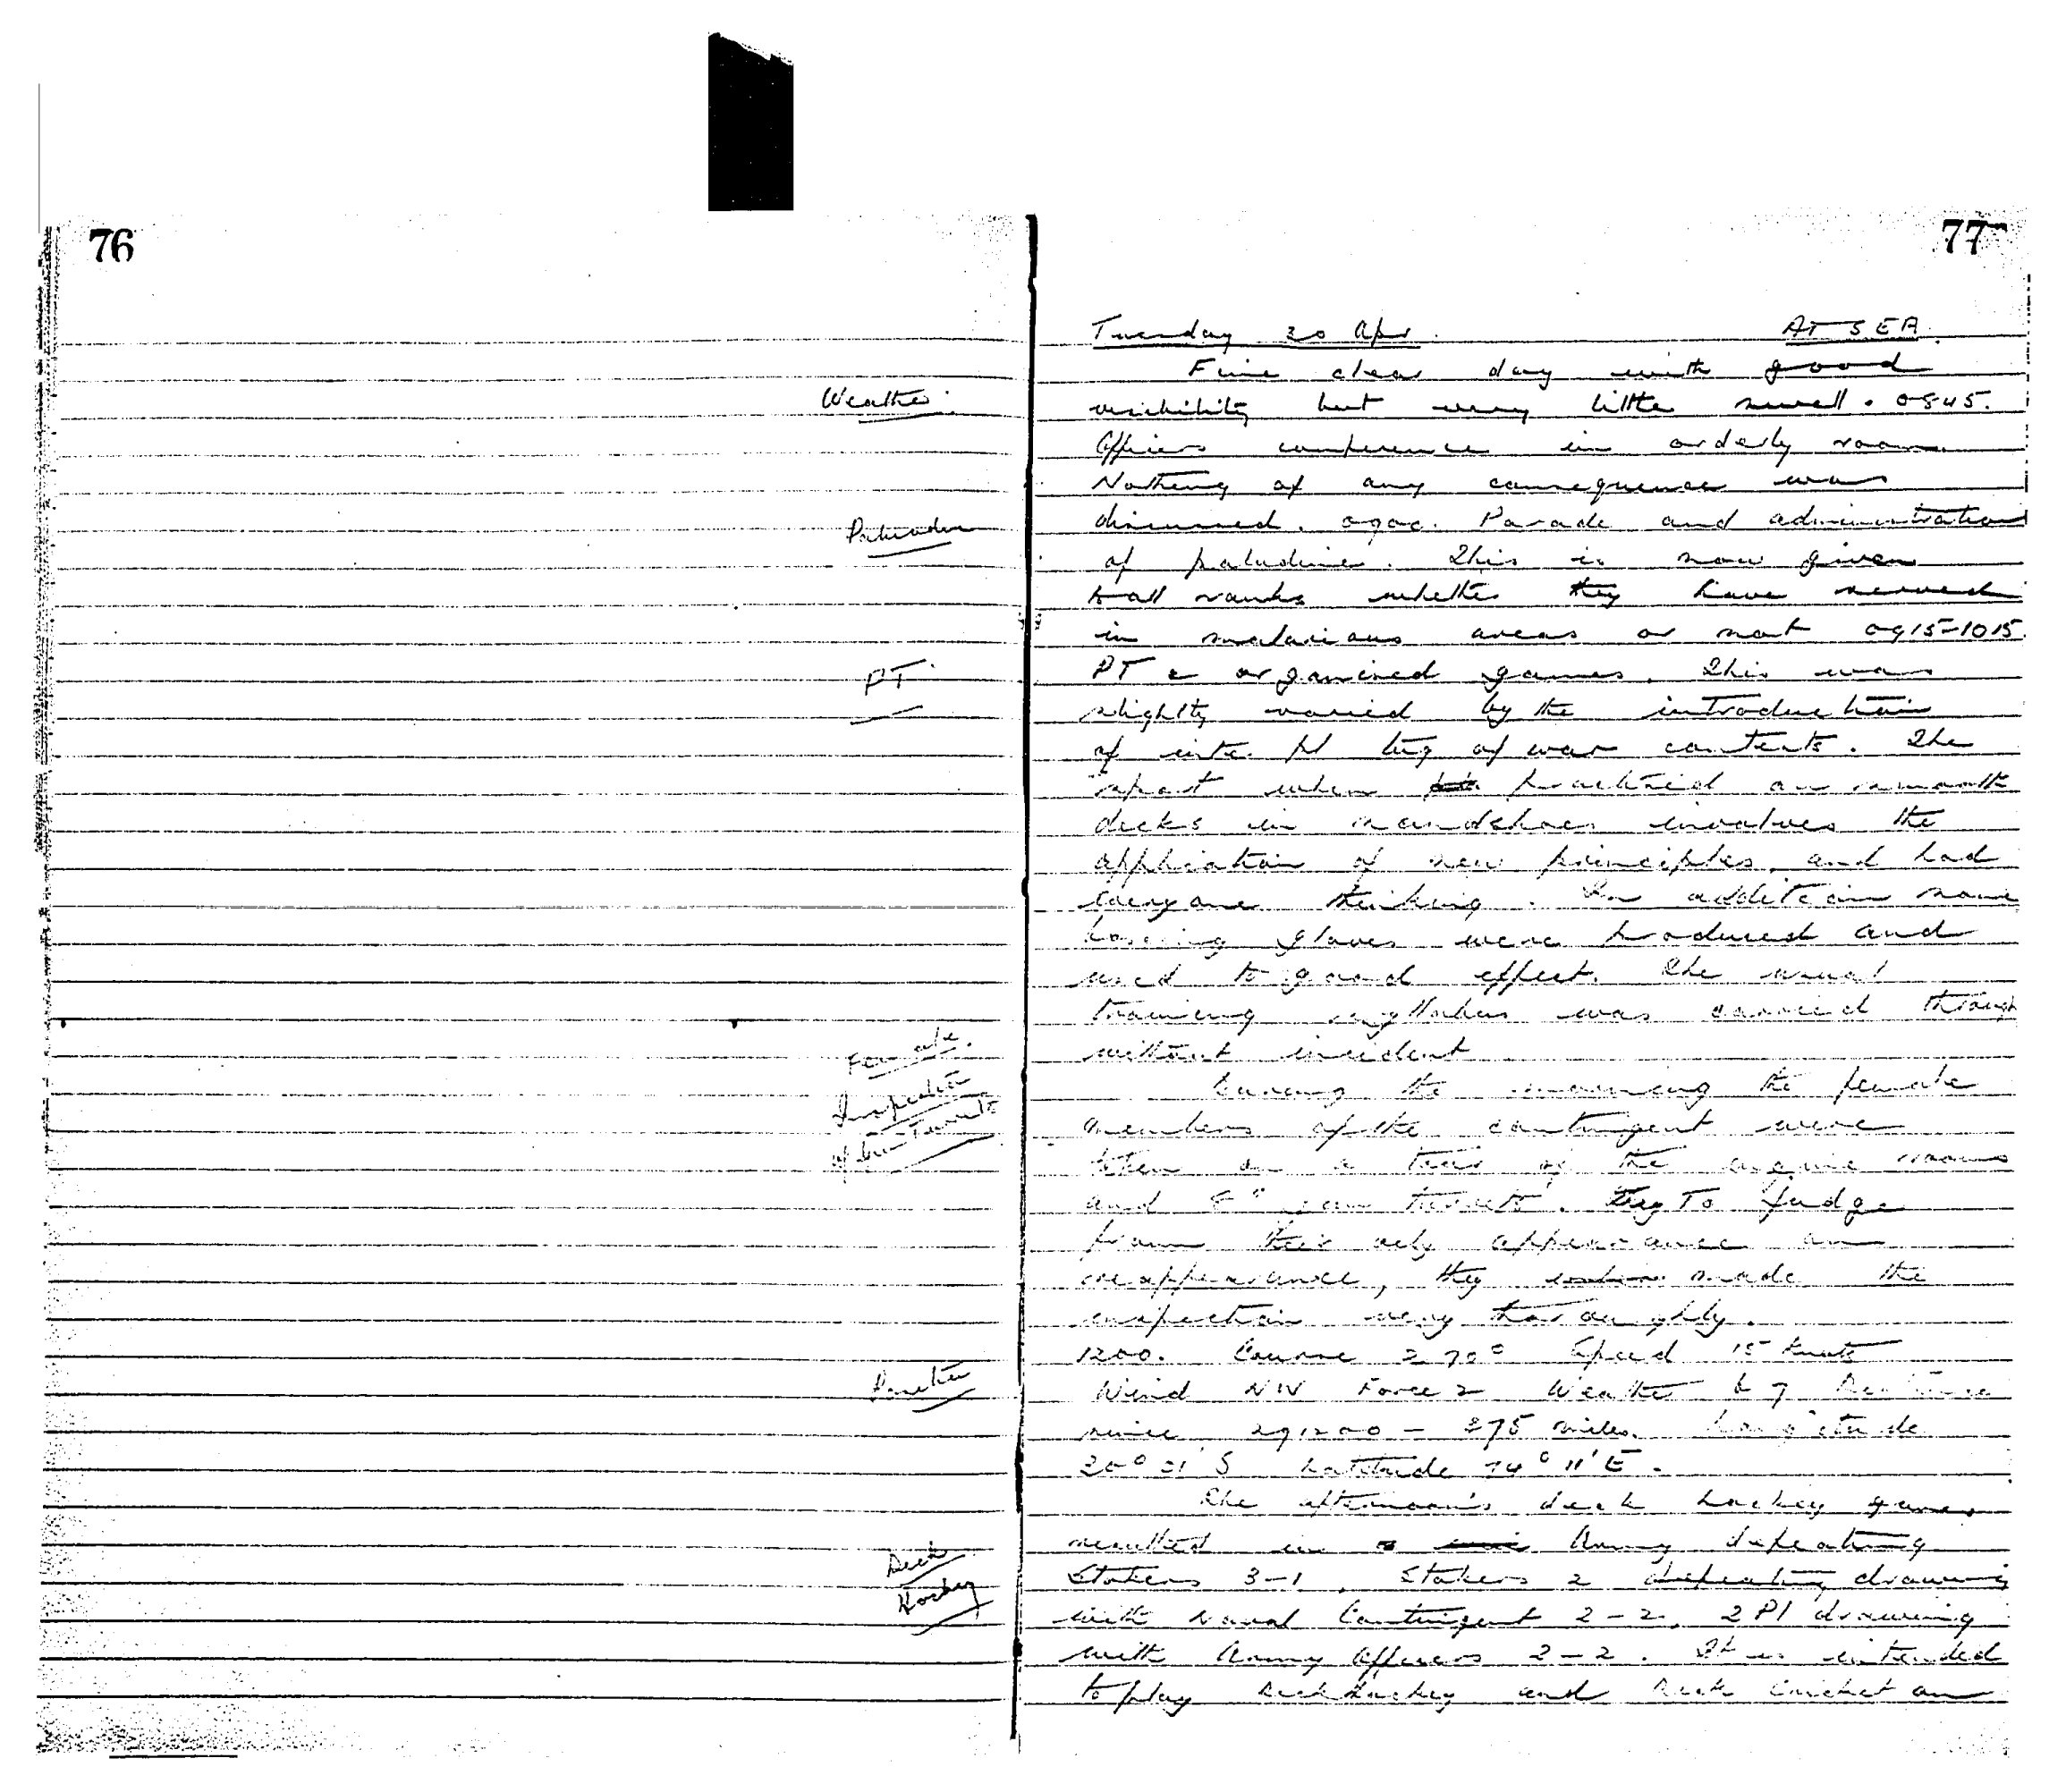 76
Weather
Paludrine
PT
Female
Inspection
of Gun Turrets
Position
Deck
Hockey
77
Tuesday 30 Apr. AT SEA
Fine clear day with good
visibility but very little swell. 0845.
Officers conference in orderly room.
Nothing of any consequence was
discussed. 0900. Parade and administration
of paludrine. This is now given
to all ranks whether they have served
in malarious areas or not 0915-1015.
PT & organised games. This was
slightly varied by the introduction
of inter Pl tug of war contests. The
sport when practised on smooth
decks in sandshoes involves the
application of new principles, and had
everyone thinking. In addition some
boxing gloves were produced and
used to good effect. The usual
training syllabus was carried through
without incident
During the morning the female
members of the contingent were
taken on a tour of the engine rooms
and 8" gun turrets. To judge
from their oily appearance on
reappearance, they made the
inspection very thoroughly.
1200. Course 270° Speed 15 knots
Wind NW Force 2 Weather b 7 Distance
since 291200 - 375 miles. Longitude
20° 21' S Latitude 74° 11' E.
The afternoon's deck hockey games
resulted in Army defeating
Stokers 3-1, Stokers 2 defeating drawing
with Naval Contingent 2-2, 2 Pl drawing
with Army Officers 2-2. It is intended
to play Deck Hockey and Deck Cricket on